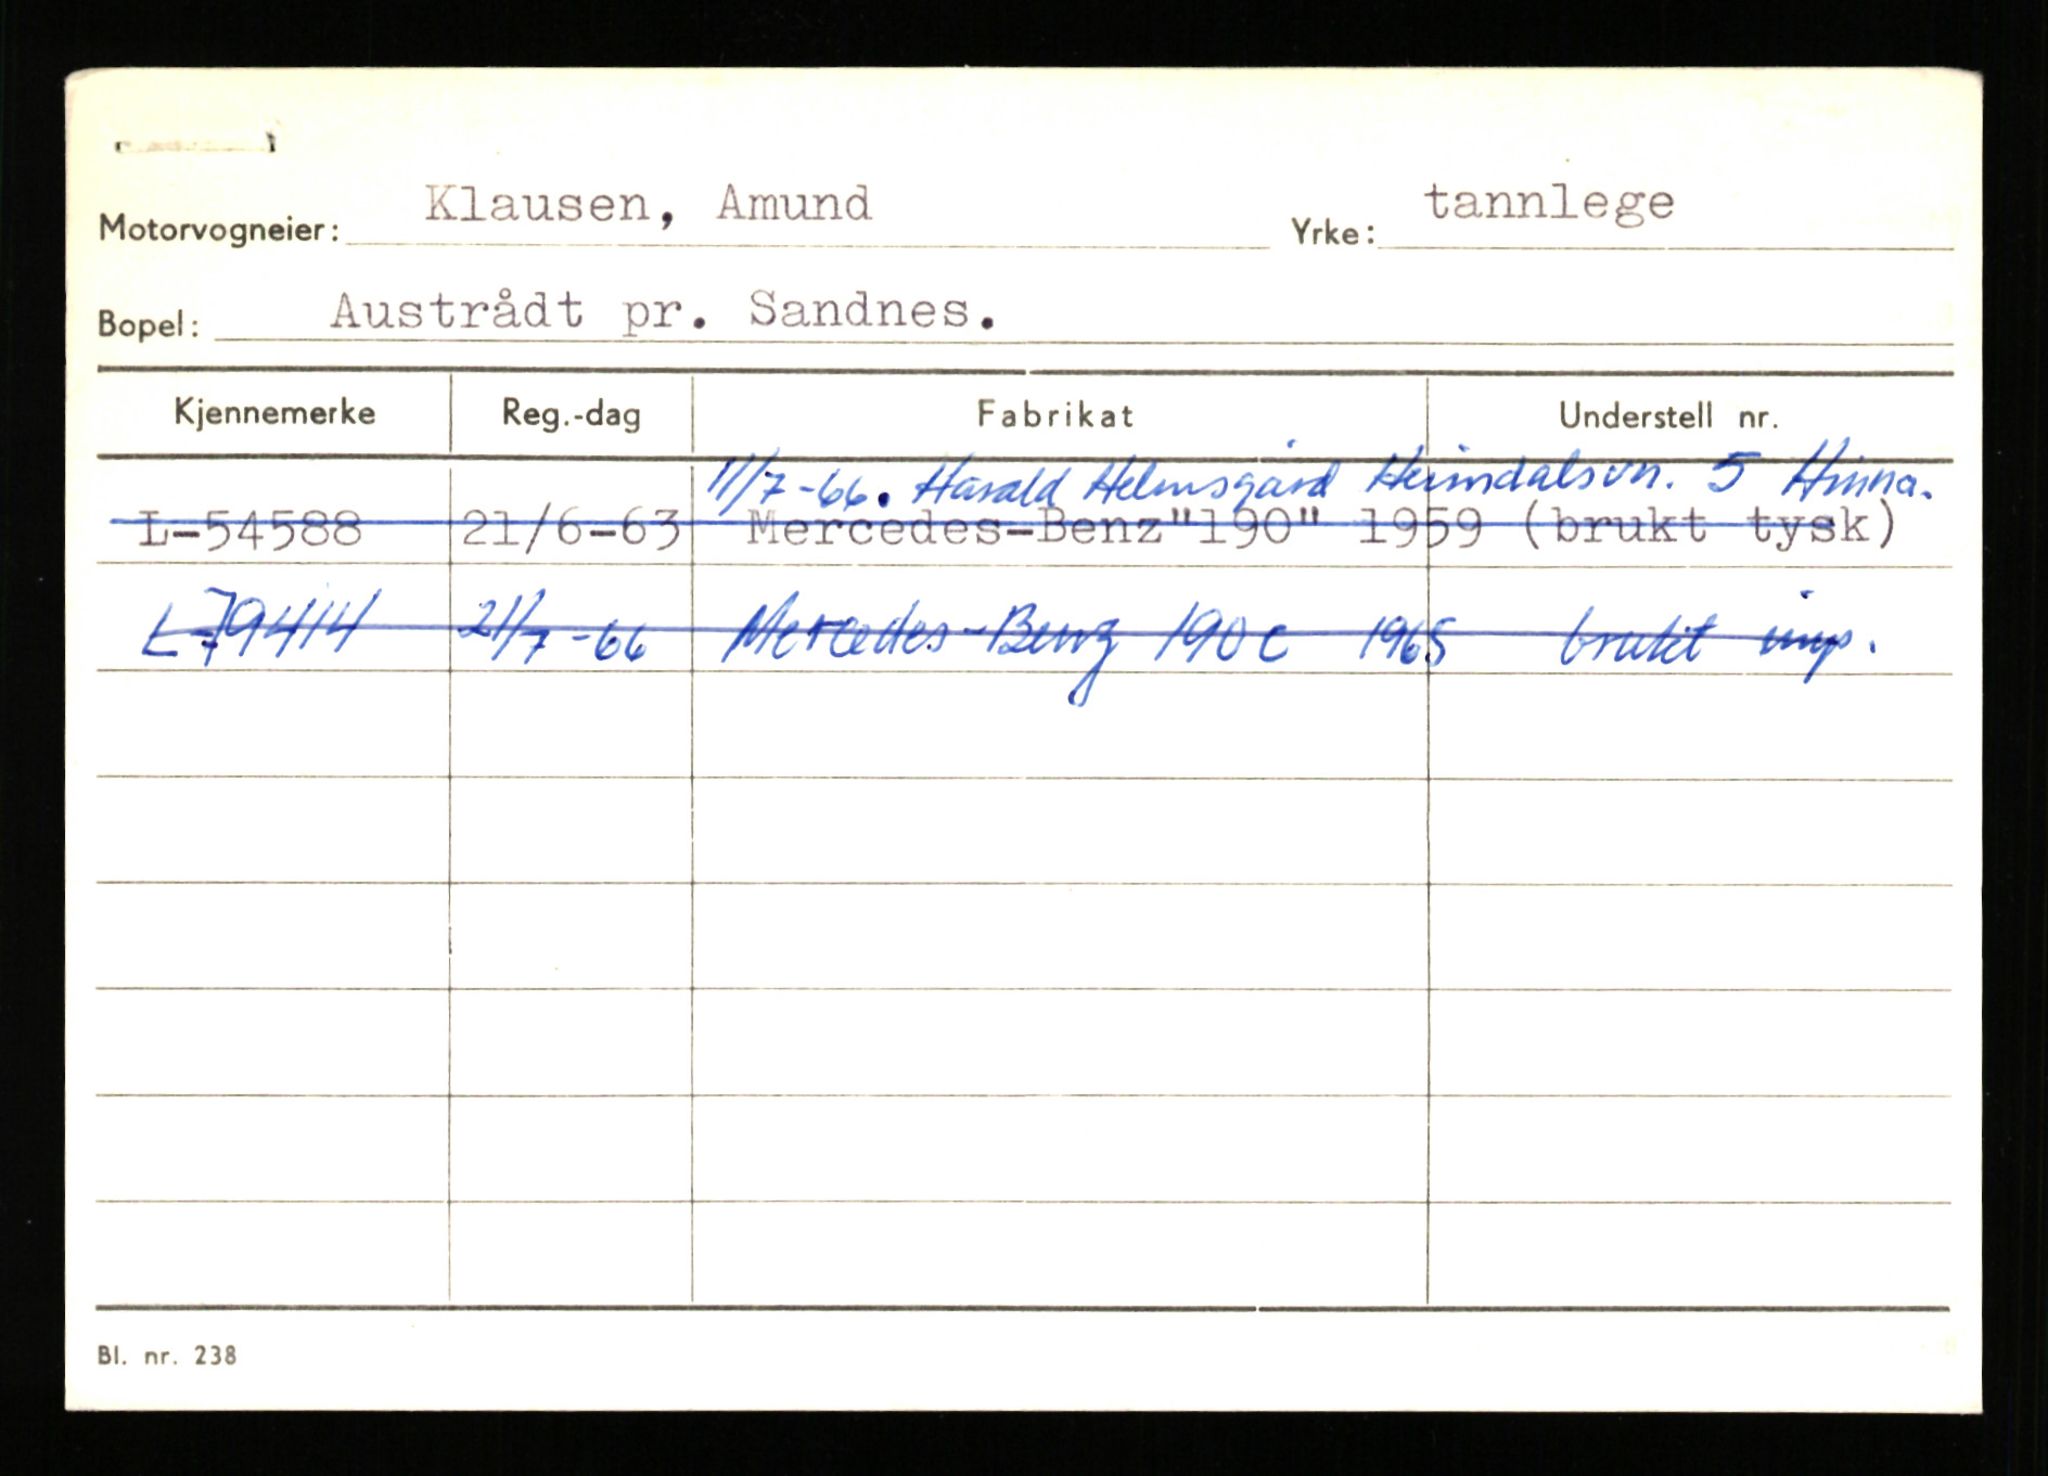 Motorvogneier: Klausen, Amund Yrke: tannlege
Bopel: Austrådt pr. Sandnes.
Kjennemerke Reg.-dag Fabrikat Understell nr.
11/7-66. Harald Helmsgård Heimdalsvn. 5 Hinna.
L-54588 21/6-63 Mercedes-Benz"190" 1959 (brukt tysk)
L-79414 21/7-66 Mercedes-Benz 190 c 1965 brukt imp.
Bl. nr. 238